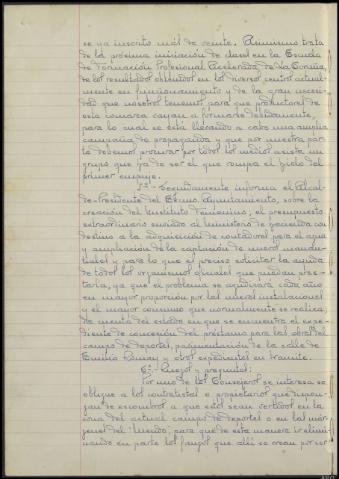 se ya inscrito más de veinte. Asimismo trata
de la próxima iniciación de clases en la Escuela
de Formación Profesional Acelerada de La Coruña,
de los resultados obtenidos en los diversos centros actual-
mente en funcionamiento y de la gran necesi-
dad que nosotros tenemos para que productores de
esta comarca vayan a formarse debidamente,
para lo cual se está llevando a cabo una amplia
campaña de propaganda y que por nuestra par-
te debemos procurar por todos los medios exista un
grupo que ha de ser el que rompa el hielo del
primer empuje.
5º.- Seguidamente informa el Alcal-
de-Presidente del Excmo. Ayuntamiento, sobre la
creación del Instituto Femenino; el presupuesto
extraordinario enviado al Ministerio de Hacienda con
destino a la adquisición de contadores para el agua
y ampliación de la captación de nuevos manan-
tiales y para lo que es preciso solicitar la ayuda
de todos los organismos oficiales que puedan pres-
tarla, ya que el problema se agudizará cada año
en mayor proporción por las nuevas instalaciones
y el mayor consumo que normalmente se realiza,
da cuenta del estado en que se encuentra el expe-
diente de concesión del préstamo para las obras del
campo de deportes, pavimentación de la calle de
y otros expedientes en trámite.
6º.- Ruegos y preguntas:
Por uno de los Consejeros se interesa se
obligue a los contratistas o propietarios que dispon-
gan de escombros a que estos sean vertidos en la
zona del actual campo de deportes o en las már-
genes del para que de esta manera ir elimi-
nando en parte los fangos que allí se crean por ser